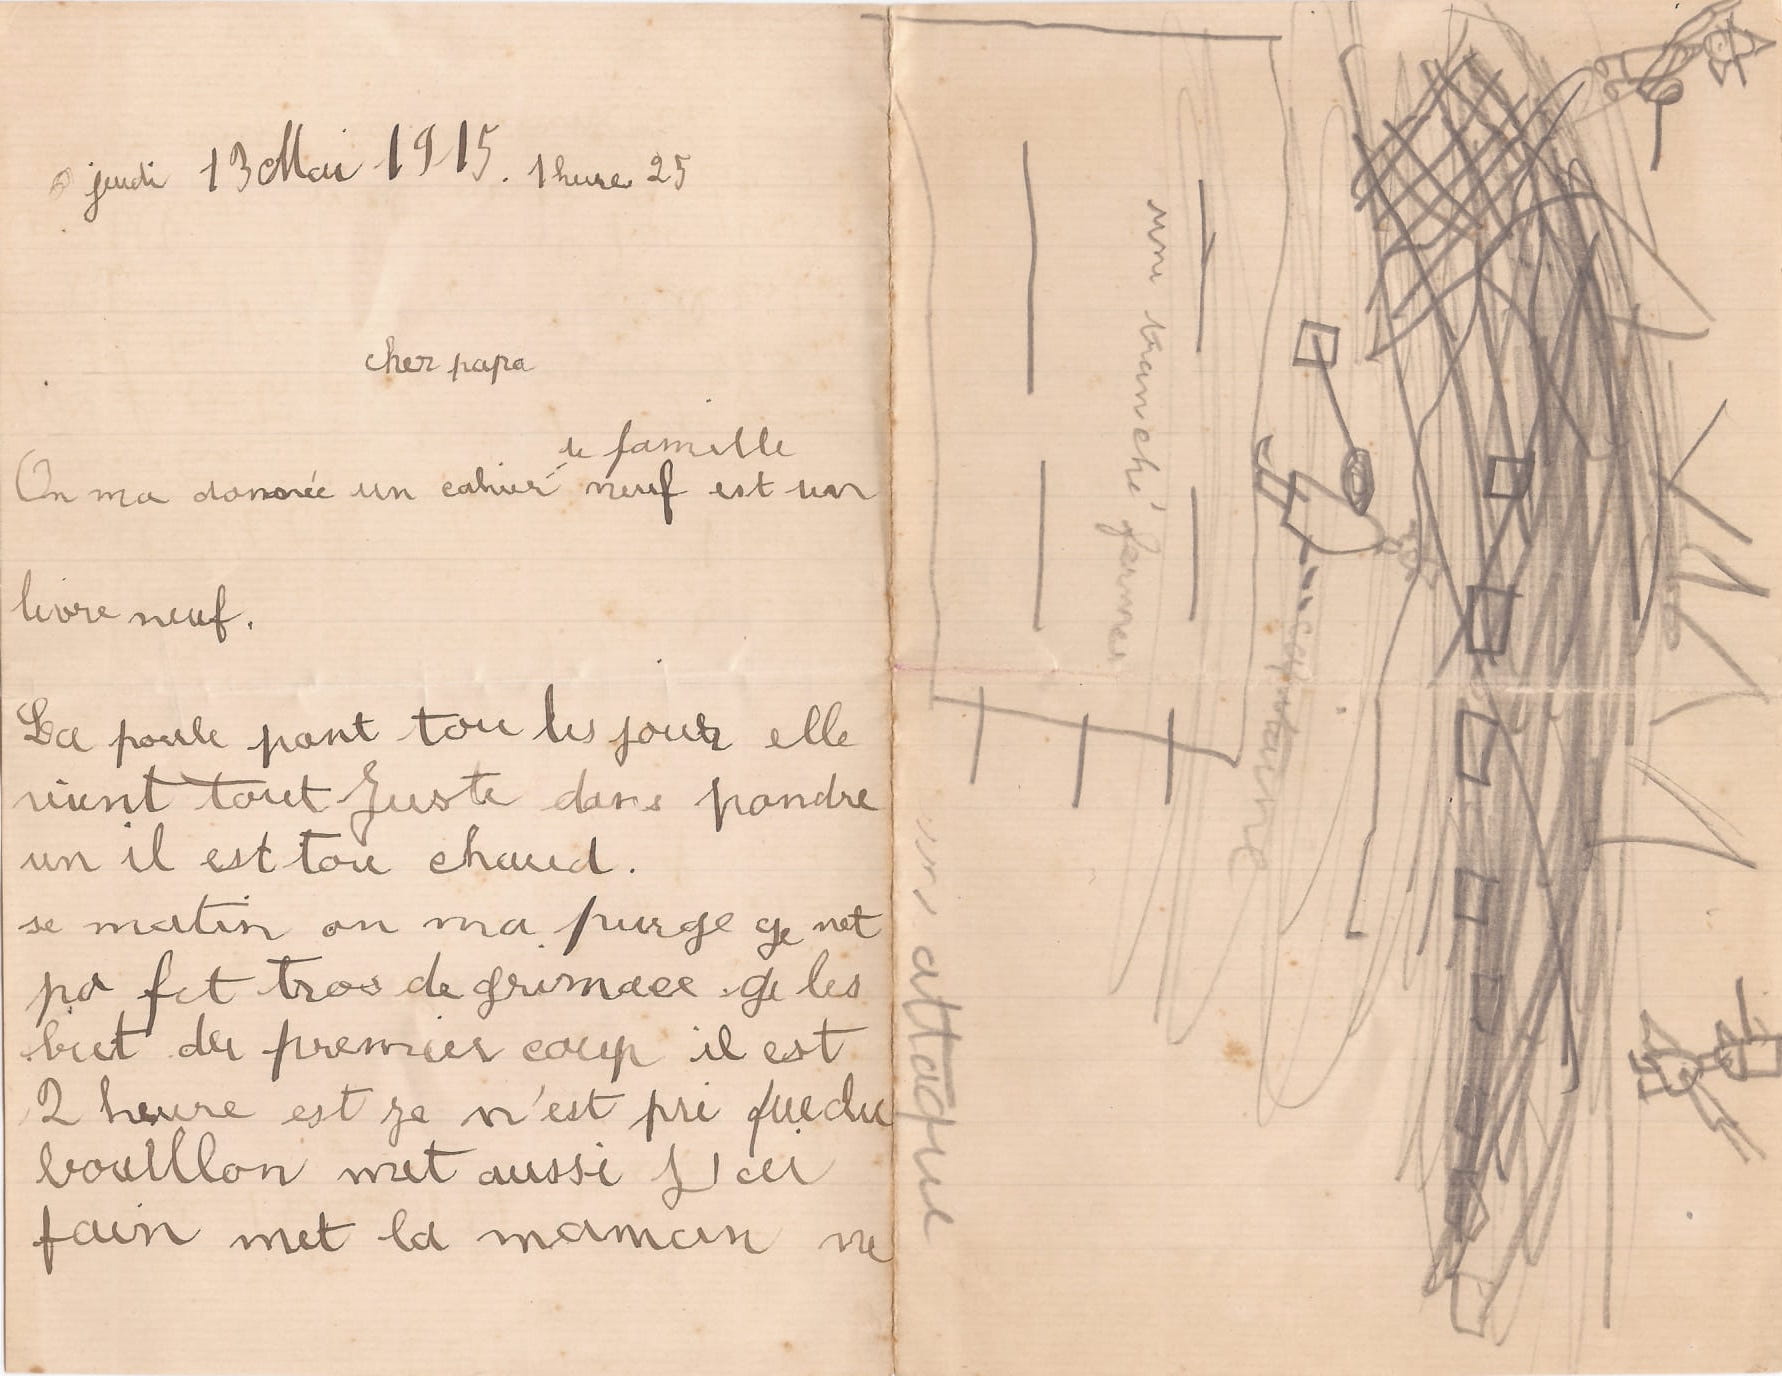 jeudi 13 Mai 1915. 1 heure 25
cher papa
de famille
On ma donnée un cahier neuf est un
livre neuf.
La poule pont tou les jour elle
vient tout Juste dans pondre
un il est tou chaud.
se matin on ma purge ge net
pa fet tros de grimace ge les
but du premier coup il est
2 heure est ge n'est pri que du
bouillon met aussi J ai
fain met la maman ne
une tranché fermer
capitaine
uns attaque